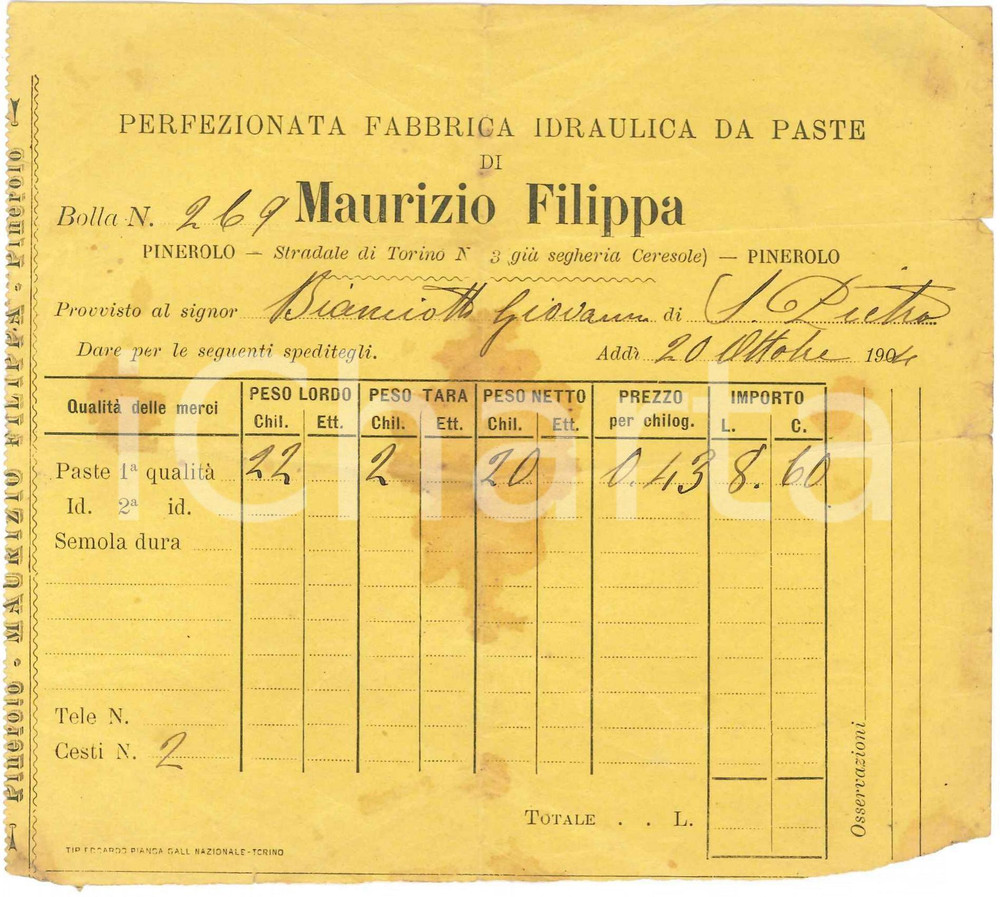 PERFEZIONATA FABBRICA IDRAULICA DA PASTE
DI
Maurizio Filippa
Bolla N. 269
PINEROLO — Stradale di Torino N 3 già segheria Ceresole) — PINEROLO
Provvisto al signor Bianciotto Giovanni di S. Pietro
Dare per le seguenti speditegli.
Addì 20 Ottobre 1904
Qualità delle merci PESO LORDO PESO TARA PESO NETTO PREZZO per chilog. IMPORTO
Chil. Ett. Chil. Ett. Chil. Ett. L. C.
Paste 1ª qualità 22 2 20 0.43 8.60
Id. 2ª id.
Semola dura
Tele N.
Cesti N. 2
TOTALE . . L.
Osservazioni
TIP. EDOARDO PIANCA GALL. NAZIONALE-TORINO
Pinerolo - MAURIZIO FILIPPA - Pinerolo
iCharta